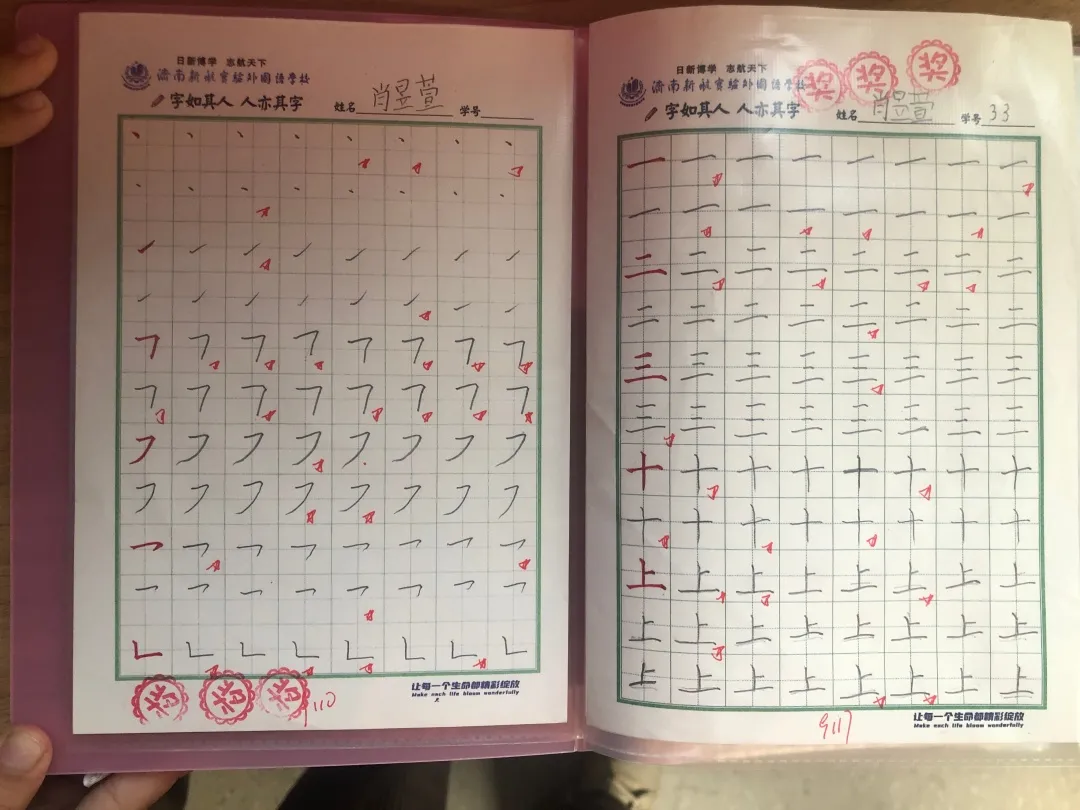 日新博学 志航天下
濟南新航實驗外國語學校
字如其人 人亦其字 姓名 肖昱萱 学号
丶 丶 丶 丶 丶 丶 丶 丶
丶 丶 丶 丶 丶 丶 丶 丶
㇀ ㇀ ㇀ ㇀ ㇀ ㇀ ㇀ ㇀
㇀ ㇀ ㇀ ㇀ ㇀ ㇀ ㇀ ㇀
㇕ ㇕ ㇕ ㇕ ㇕ ㇕ ㇕ ㇕
㇕ ㇕ ㇕ ㇕ ㇕ ㇕ ㇕ ㇕
㇇ ㇇ ㇇ ㇇ ㇇ ㇇ ㇇ ㇇
㇇ ㇇ ㇇ ㇇ ㇇ ㇇ ㇇ ㇇
㇖ ㇖ ㇖ ㇖ ㇖ ㇖ ㇖ ㇖
㇖ ㇖ ㇖ ㇖ ㇖ ㇖ ㇖ ㇖
㇗ ㇗ ㇗ ㇗ ㇗ ㇗ ㇗ ㇗
奖 奖 奖
让每一个生命都精彩绽放
Make each life bloom wonderfully
奖 奖 奖
日新博学 志航天下
濟南新航實驗外國語學校
字如其人 人亦其字 姓名 肖昱萱 学号 33
一 一 一 一 一 一 一 一
一 一 一 一 一 一 一 一
二 二 二 二 二 二 二 二
二 二 二 二 二 二 二 二
三 三 三 三 三 三 三 三
三 三 三 三 三 三 三 三
十 十 十 十 十 十 十 十
十 十 十 十 十 十 十 十
上 上 上 上 上 上 上 上
上 上 上 上 上 上 上 上
上 上 上 上 上 上 上 上
让每一个生命都精彩绽放
Make each life bloom wonderfully